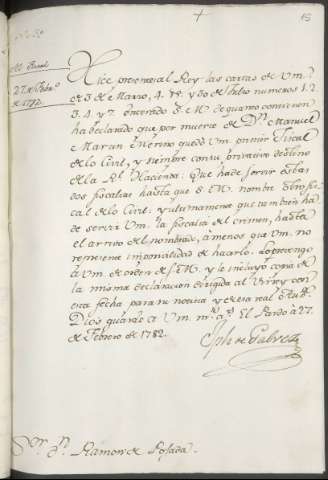 +
13
Al Fiscal
27 de Febro
de 1782
Hice presente al Rey las cartas de Vm.
de 3 de Marzo, 4 de, y 30 de Julio numeros 1. 2.
3. 4. y 7. enterado S. M. de quanto contienen
ha declarado que por muerte de Dn. Manuel
Martin Merino quedó Vm. primer Fiscal
de lo Civil, y siempre con su privativo destino
de la Rl. Hacienda: Que ha de servir esas
dos fiscalias hasta que S. M. nombre Fis
cal de lo Civil: Y ultimamente que tambien ha
de servir Vm. la fiscalia del crimen, hasta
el arrivo del nombrado, à menos que Vm. no
represente imposivilidad de hacerlo. Lo prevengo
à Vm. de orden de S. M. y le incluyo copia de
la misma declaracion dirigida al Virrey con
esta fecha para su noticia y de esa real Auda.
Dios guarde à Vm. ms. as. El Pardo à 27
de Febrero de 1782.
Jph de Galvez
Sor. Dn. Ramon de Posada.